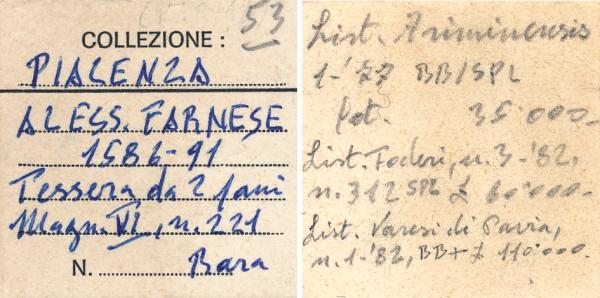 53
COLLEZIONE :
PIACENZA
ALESS. FARNESE
1586-91
Tessera da 2
Magn. VI, n. 221
N. Rara
List. Ariminensis
1-'77 BB/SPL
fot. 35.000-
List. Foderi, n. 3-'82,
n. 312 SPL £ 60.000-
List. Varesi di Pavia,
n. 1-'82, BB+ £ 110.000.